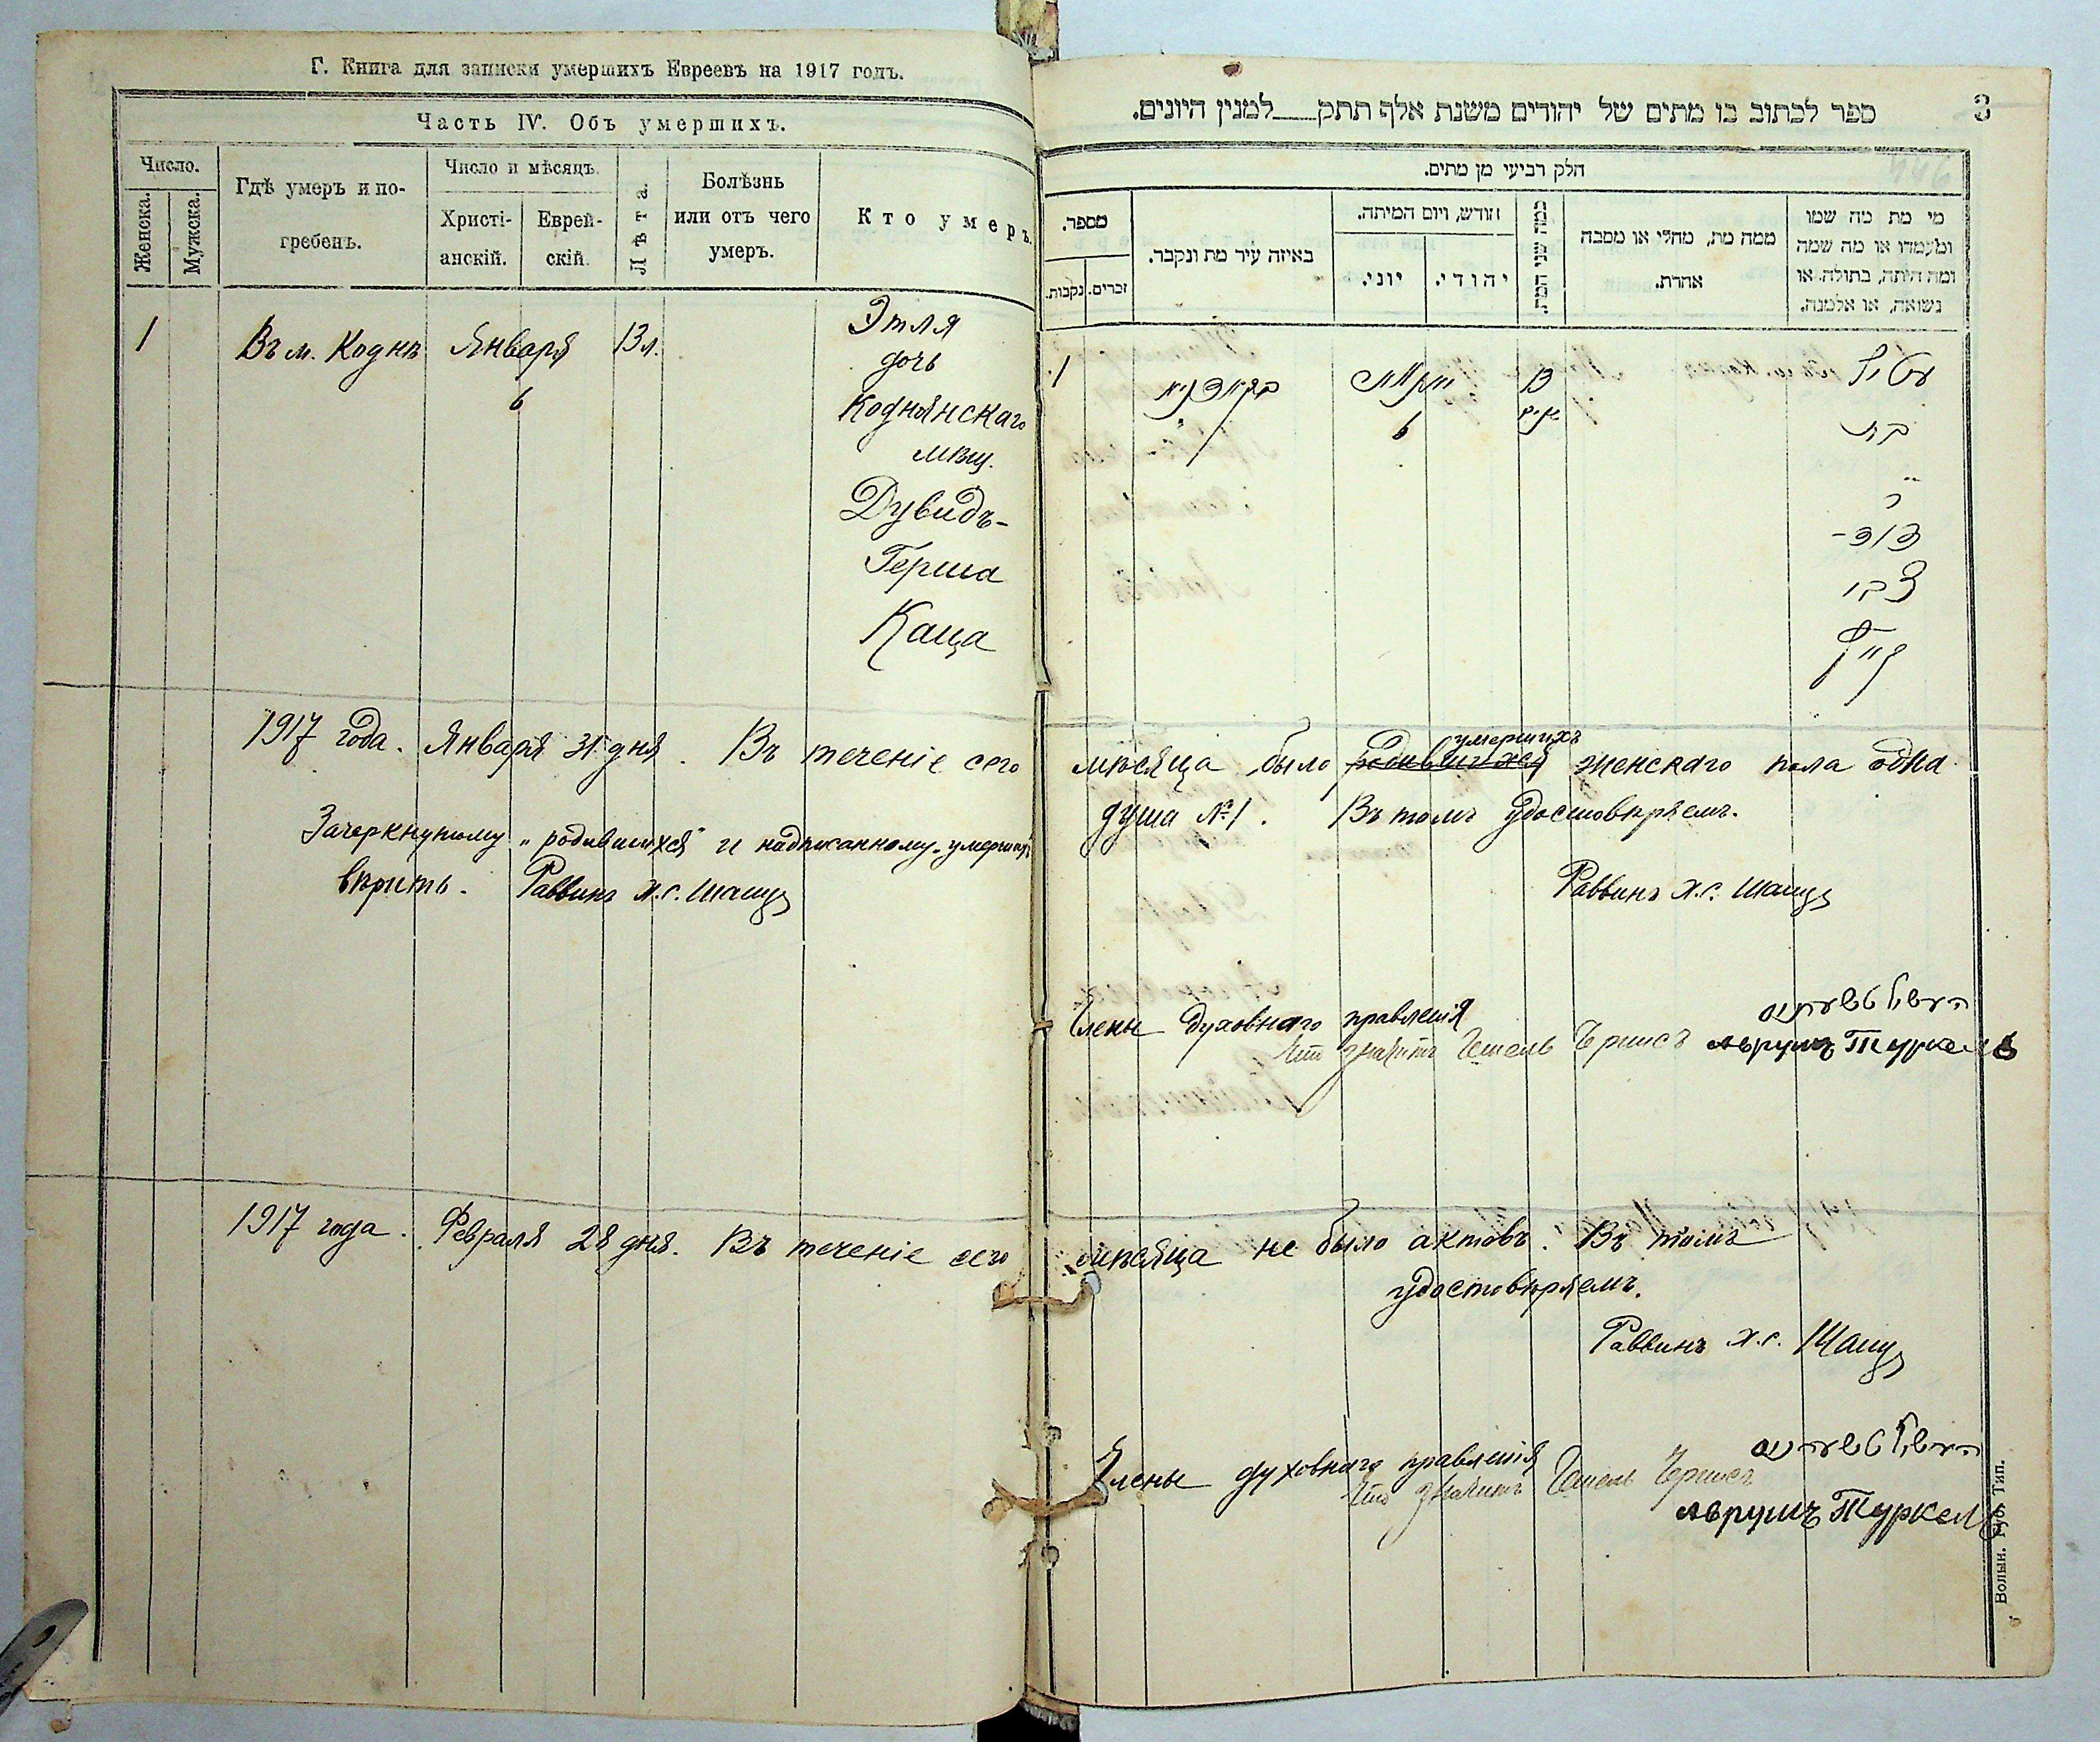 Г. Книга для записки умершихъ Евреевъ на 1917 годъ.
Часть IV. Объ умершихъ.
Число.
Женска.
Мужска.
Гдѣ умеръ и по-
гребенъ.
Число и мѣсяцъ.
Христі-
анскій.
Еврей-
скій.
Лѣта.
Болѣзнь
или отъ чего
умеръ.
Кто умеръ.
1
Въ м. Коднѣ
Января
6
13 л.
Этля
дочь
Коднянскаго
мѣщ.
Дувидъ-
Герша
Каца
1917 года. Января 31 дня. Въ теченіе сего
Зачеркнутому „родившихся" и надписанному „умершихъ
вѣрить. Раввинъ Х.С.
1917 года. Февраля 28 дня. Въ теченіе сего
ספר לכתוב בו מתים של יהודים משנת אלף תתק למנין היונים.
3
חלק רביעי מן מתים.
מספר.
נקבות.
זכרים.
באיזה עיר מת ונקבר.
חודש, ויום המיתה.
יוני.
יהודי.
כמה שני המת.
ממה מת, מחלי או מסבה
אחרת.
מי מת מה שמו
ומעמדו או מה שמה
ומה היתה, בתולה או
נשואה, או אלמנה.
1
6
13
עטיל
בת
ר
דוד-
צבי
мѣсяца было родившихся умершихъ женскаго пола одна
душа №1. Въ томъ удостовѣряемъ.
Раввинъ Х.С.
Члены духовнаго правленія
что значитъ Гешель
Аврумъ Туркель
мѣсяца не было актовъ. Въ томъ
удостовѣряемъ.
Раввинъ Х.С.
Члены духовнаго правленія
что значитъ Гешель
Аврумъ Туркель
Волын. Губ. Тип.